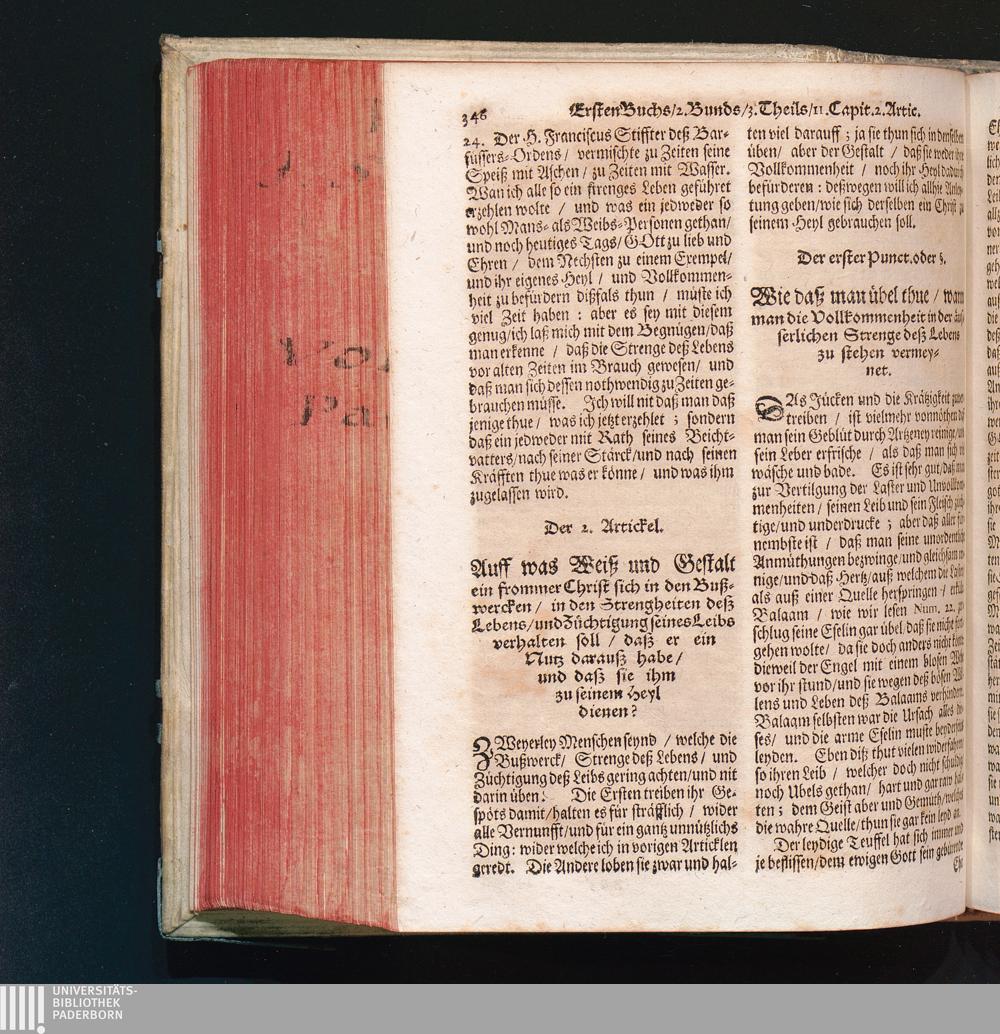 346
Ersten Buchs/2. Bunds/3. Theils/11. Capit. 2. Artic.
24. Der H. Franciscus Stiffter deß Bar-
füssers-Ordens / vermischte zu Zeiten seine
Speiß mit Aschen / zu Zeiten mit Wasser.
Wan ich alle so ein strenges Leben geführet
erzehlen wolte / und was ein jedweder so
wohl Mans- als Weibs-Personen gethan/
und noch heutiges Tags/ GOtt zu lieb und
Ehren / dem Nechsten zu einem Exempel/
und ihr eigenes Heyl / und Vollkommen-
heit zu befürdern dißfals thun / müste ich
viel Zeit haben : aber es sey mit diesem
genug/ich laß mich mit dem Begnügen/daß
man erkenne / daß die Strenge deß Lebens
vor alten Zeiten im Brauch gewesen/ und
daß man sich dessen nothwendig zu Zeiten ge-
brauchen müsse. Ich will nit daß man daß
jenige thue / was ich jetzt erzehlet ; sondern
daß ein jedweder mit Rath seines Beicht-
vatters/nach seiner Stärck/und nach seinen
Kräfften thue was er könne / und was ihm
zugelassen wird.
Der 2. Artickel.
Auff was Weiß und Gestalt
ein frommer Christ sich in den Buß-
wercken / in den Strengheiten deß
Lebens/und Züchtigung seines Leibs
verhalten soll / daß er ein
Nutz darauß habe /
und daß sie ihm
zu seinem Heyl
dienen?
ZWeyerley Menschen seynd / welche die
Bußwerck/ Strenge deß Lebens / und
Züchtigung deß Leibs gering achten/und nit
darin üben. Die Ersten treiben ihr Ge-
spöts damit/halten es für sträfflich / wider
alle Vernunfft/und für ein gantz unnützlichs
Ding: wider welche ich in vorigen Articklen
geredt. Die Andere loben sie zwar und hal-
ten viel darauff ; ja sie thun sich in denselben
üben/ aber der Gestalt / daß sie weder ihre
Vollkommenheit / noch ihr Heyl dadurch
befürderen : deßwegen will ich allhie Anley-
tung geben/wie sich derselben ein Christ zu
seinem Heyl gebrauchen soll.
Der erster Punct. oder §.
Wie daß man übel thue / wann
man die Vollkommenheit in der äus-
serlichen Strenge deß Lebens
zu stehen vermey-
net.
DAs Jücken und die Krätzigkeit zuver-
treiben / ist vielmehr vonnöthen daß
man sein Geblüt durch Artzeney reinige/und
sein Leber erfrische / als daß man sich
wäsche und bade. Es ist sehr gut/daß man
zur Vertilgung der Laster und Unvollkom-
menheiten / seinen Leib und sein Fleisch züch-
tige/und underdrucke ; aber daß aller für-
nembste ist / daß man seine unordentliche
Anmüthungen bezwinge/und gleichsam
nige/und daß Hertz/auß welchem die Laster
als auß einer Quelle herspringen /
Balaam / wie wir lesen Num. 22.
schlug seine Eselin gar übel/ daß sie nicht fort-
gehen wolte/ da sie doch anders nicht konte
dieweil der Engel mit einem blosen
vor ihr stund/und sie wegen deß bösen Wil-
lens und Leben deß Balaams verhindert.
Balaam selbsten war die Ursach alles die-
ses/ und die arme Eselin muste beyderseits
leyden. Eben diß thut vielen widerfahren
so ihren Leib / welcher doch nicht schuldig
noch Ubels gethan/ hart und gar rauh hal-
ten ; dem Geist aber und Gemüth/welches
die wahre Quelle/thun sie gar kein leyd an.
Der leydige Teuffel hat sich immer und
je beflissen/dem ewigen Gott sein gebürende
Ehr
UNIVERSITÄTS-
BIBLIOTHEK
PADERBORN